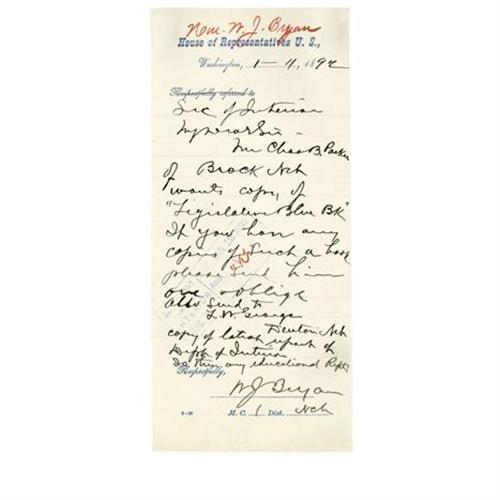 Hon. W. J. Bryan
House of Representatives U. S.,
Washington, 1-4, 1892
Respectfully referred to
Sec of Interior
My dear Sir -
Mr Chas B. Parker
of Brock Neb
wants copy of
"Legislative Blue Bk"
If you have any
copies of such a book
please send him
one & oblige
Also send to
L. W. George
Denton Neb
copy of latest report of
Dept of Interior
Is there any educational Rept
Respectfully,
W J Bryan
6-10 M. C. 1 Dist. Neb